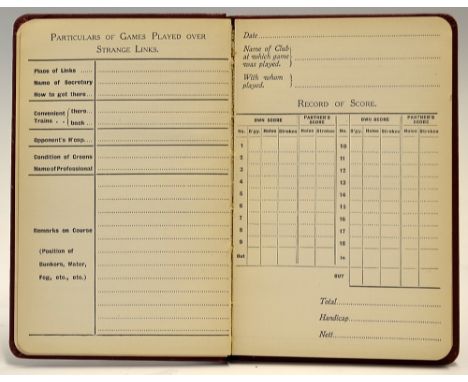 PARTICULARS OF GAMES PLAYED OVER
STRANGE LINKS.
Place of Links .....
Name of Secretary
How to get there...
Convenient { there
Trains . . { back...
Opponent's H'cap....
Condition of Greens
Name of Professional
Remarks on Course
(Position of
Bunkers, Water,
Fog, etc., etc.)
Date
Name of Club
at which game
was played.
With whom
played.
RECORD OF SCORE.
OWN SCORE PARTNER'S SCORE OWN SCORE PARTNER'S SCORE
No. B'gy. Holes Strokes Holes Strokes No. B'gy. Holes Strokes Holes Strokes
1 10
2 11
3 12
4 13
5 14
6 15
7 16
8 17
9 18
Out In
OUT
Total
Handicap
Nett